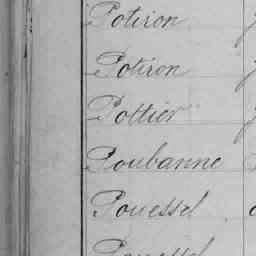 Potiron
Potiron
Pottier
Poubanne
Pouessel
Pouessel